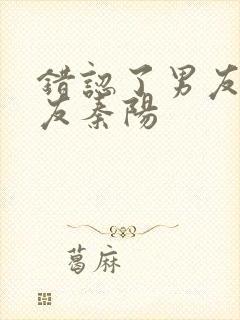 錯認了男友
友秦陽
葛麻